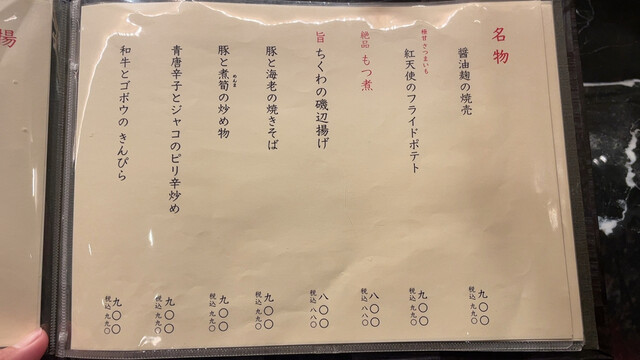 名物
醤油麹の焼売
九〇〇
税込 九九〇
極甘 さつまいも
紅天使のフライドポテト
九〇〇
税込 九九〇
絶品 もつ煮
八〇〇
税込 八八〇
旨 ちくわの磯辺揚げ
八〇〇
税込 八八〇
豚と海老の焼きそば
九〇〇
税込 九九〇
豚と煮筍の炒め物
めんま
九〇〇
税込 九九〇
青唐辛子とジャコのピリ辛炒め
九〇〇
税込 九九〇
和牛とゴボウの きんぴら
九〇〇
税込 九九〇
揚